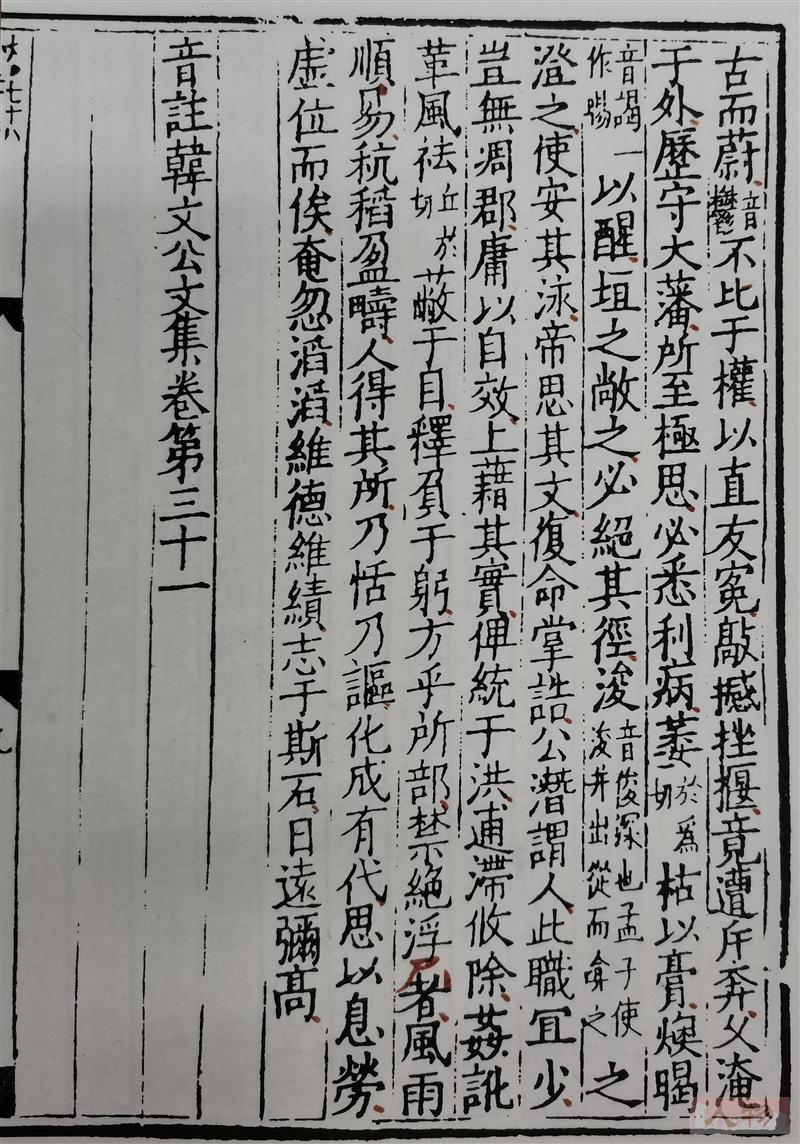 古而蔚音鬱不比于權以直友冤敲撼挫揠竟遭斥奔久淹
于外歷守大藩所至極思必悉利病萎於爲切枯以膏燠暍
音謁一作暘以醒垣之敞之必絕其徑浚音俊深也孟子使浚井出從而揜之之
澄之使安其泳帝思其文復命掌誥公潛謂人此職冝少
豈無凋郡庸以自效上藉其實俾統于洪逋滯攸除姦訛
革風祛丘於切蔽于目釋負于躬方乎所部禁絕浮尼者風雨
順易秔稻盈疇人得其所乃恬乃謳化成有代思以息勞
虛位而俟奄忽滔滔維德維績志于斯石日遠彌高
音註韓文公文集卷第三十一
七十八
九